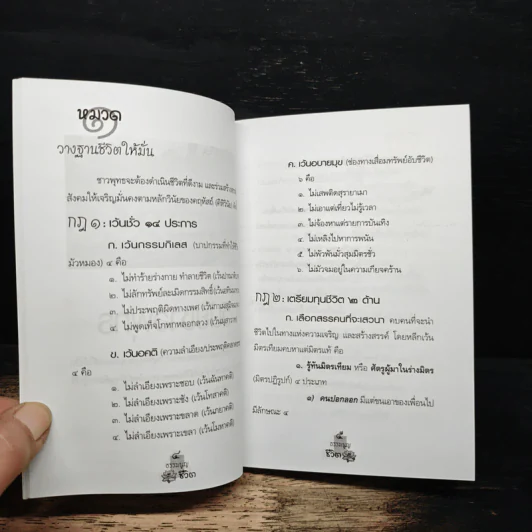 หมวด ๑
วางฐานชีวิตให้มั่น
ชาวพุทธจะต้องดำเนินชีวิตที่ดีงาม และร่วมสร้าง
สังคมให้เจริญมั่นคงตามหลักวินัยของคฤหัสถ์
กฎ ๑ : เว้นชั่ว ๑๔ ประการ
ก. เว้นกรรมกิเลส (บาปกรรมที่ทำให้
มัวหมอง) ๔ คือ
๑. ไม่ทำร้ายร่างกาย ทำลายชีวิต
๒. ไม่ลักทรัพย์ละเมิดกรรมสิทธิ์
๓. ไม่ประพฤติผิดทางเพศ
๔. ไม่พูดเท็จโกหกหลอกลวง
ข. เว้นอคติ (ความลำเอียง/ประพฤติ
๔ คือ
๑. ไม่ลำเอียงเพราะชอบ (เว้นฉันทาคติ)
๒. ไม่ลำเอียงเพราะชัง (เว้นโทสาคติ)
๓. ไม่ลำเอียงเพราะขลาด (เว้นภยาคติ)
๔. ไม่ลำเอียงเพราะเขลา (เว้นโมหาคติ)
ธรรมนูญ
ชีวิต
ค. เว้นอบายมุข (ช่องทางเสื่อมทรัพย์อับชีวิต)
๖ คือ
๑. ไม่เสพติดสุรายาเมา
๒. ไม่เอาแต่เที่ยวไม่รู้เวลา
๓. ไม่จ้องหาแต่รายการบันเทิง
๔. ไม่เหลิงไปหาการพนัน
๕. ไม่พัวพันมั่วสุมมิตรชั่ว
๖. ไม่มัวจมอยู่ในความเกียจคร้าน
กฎ ๒ : เตรียมทุนชีวิต ๒ ด้าน
ก. เลือกสรรคนที่จะเสวนา คบคนที่จะนำ
ชีวิตไปในทางแห่งความเจริญ และสร้างสรรค์ โดยหลีกเว้น
มิตรเทียมคบหาแต่มิตรแท้ คือ
๑. รู้ทันมิตรเทียม หรือ ศัตรูผู้มาในร่างมิตร
(มิตรปฏิรูปก์) ๔ ประเภท
๑) คนปอกลอก มีแต่ขนเอาของเพื่อนไป
มีลักษณะ ๔
ธรรมนูญ
ชีวิต